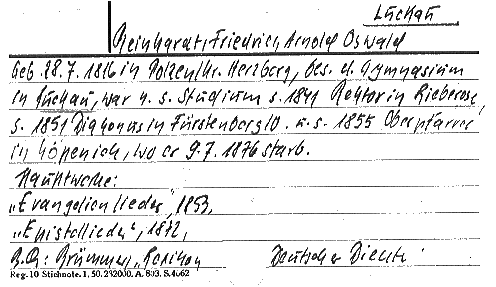 Luckau
Reinhardt, Friedrich Arnold Oswald
geb. 28.7.1816 in Polzen/Kr. Herzberg, bes. d. Gymnasium
in Luckau, war n. s. Studium s. 1841 Rektor in Lieberose,
s. 1851 Diakonus in Fürstenberg/O. u. s. 1855 Oberpfarrer
in Köpenick, wo er 9.7.1876 starb.
Hauptwerke:
„Evangelienlieder", 1853,
„Epistellieder", 1872,
Brümmer, Lexikon Deutscher Dichter
Reg. 10 Stichnote. 1, 50. 232000. A. 803. S. 4662